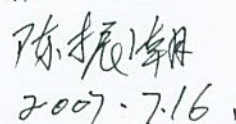 陈振潮
2007.7.16